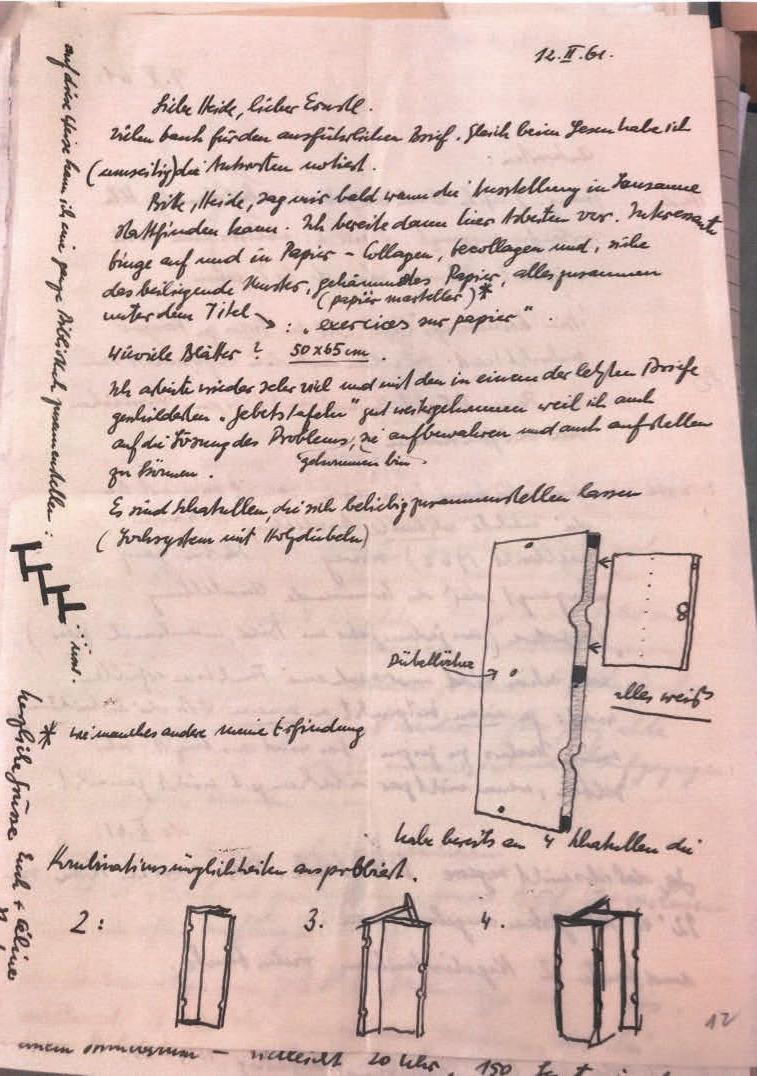 12.II.61.
Liebe Heide, lieber Ernstl.
vielen Dank für den ausführlichen Brief. Gleich beim Lesen habe ich
(umseitig) die Antworten notiert.
Bitte, Heide, sag mir bald wann die Ausstellung in Lausanne
stattfinden kann. Ich bereite dann hier Arbeiten vor. Interessante
Dinge auf und in Papier – Collagen, Decollagen und, siehe
das beiliegende Muster, gehämmertes Papier, alles zusammen
(papier marteller)*
unter dem Titel → : „exercices sur papier".
Wieviele Blätter? 50x65 cm.
Ich arbeite wieder sehr viel und mit den in einem der letzten Briefe
geschilderten „Gebetstafeln" gut weitergekommen weil ich auch
auf die Lösung des Problems, sie aufbewahren und auch aufstellen
zu können. gekommen bin
Es sind Schatullen, die sich beliebig zusammenstellen lassen
(Lochsystem mit Holzdübeln)
Dübellöcher
alles weiß
* wie manches andere meine Erfindung
habe bereits an 4 Schatullen die
Kombinationsmöglichkeiten ausprobiert.
2: 3. 4.
12
auf diese Weise kann ich eine ganze Bibliothek zusammenstellen:
usw.
herzliche Grüsse Euch + Céline
vielleicht 20 Uhr, 150